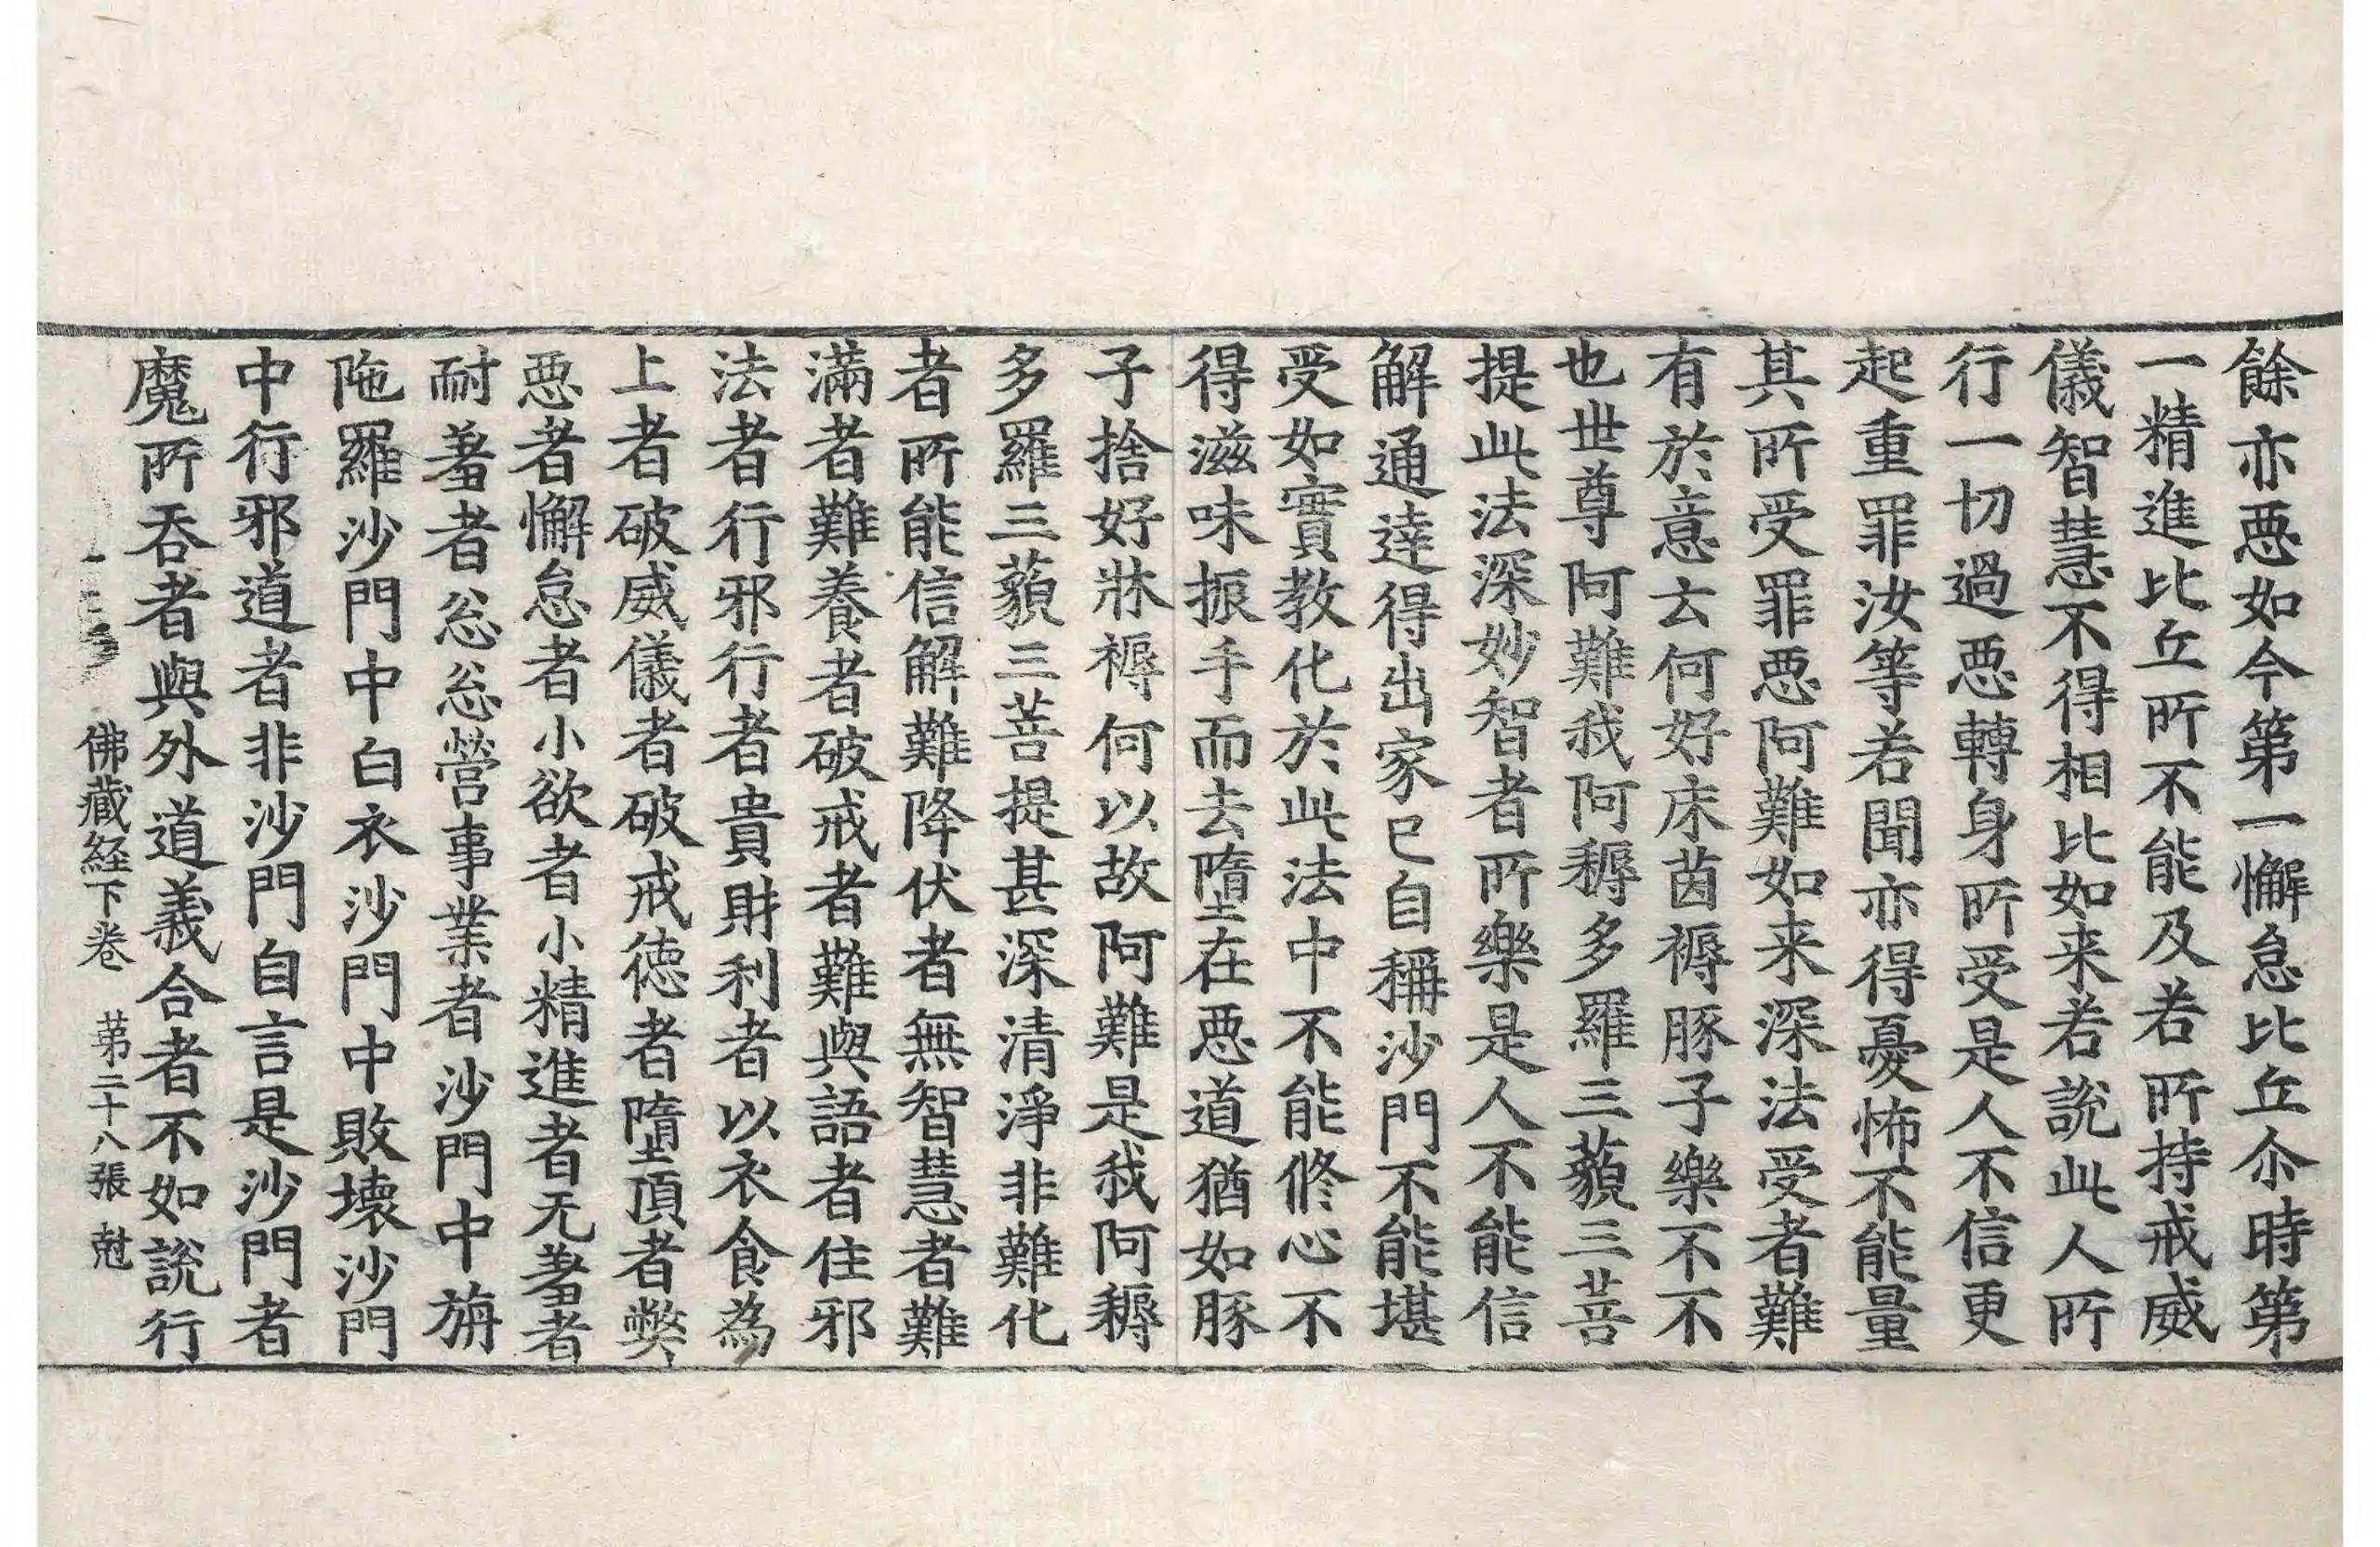 餘亦惡如今第一懈怠比丘尒時第
一精進比丘所不能及若所持戒威
儀智慧不得相比如来若說此人所
行一切過惡轉身所受是人不信更
起重罪汝等若聞亦得憂怖不能量
其所受罪惡阿難如来深法受者難
有於意云何好床茵褥豚子樂不不
也世尊阿難我阿耨多羅三藐三菩
提此法深妙智者所樂是人不能信
解通達得出家已自稱沙門不能堪
受如實教化於此法中不能修心不
得滋味振手而去墮在惡道猶如豚
子捨好牀褥何以故阿難是我阿耨
多羅三藐三菩提甚深清淨非難化
者所能信解難降伏者無智慧者難
滿者難養者破戒者難與語者住邪
法者行邪行者貴財利者以衣食為
上者破威儀者破戒德者墮頂者弊
惡者懈怠者小欲者小精進者无羞者
耐羞者忩忩營事業者沙門中旃
陁羅沙門中白衣沙門中敗壞沙門
中行邪道者非沙門自言是沙門者
魔所吞者與外道義合者不如說行
佛藏経下卷 第二十八張 尅